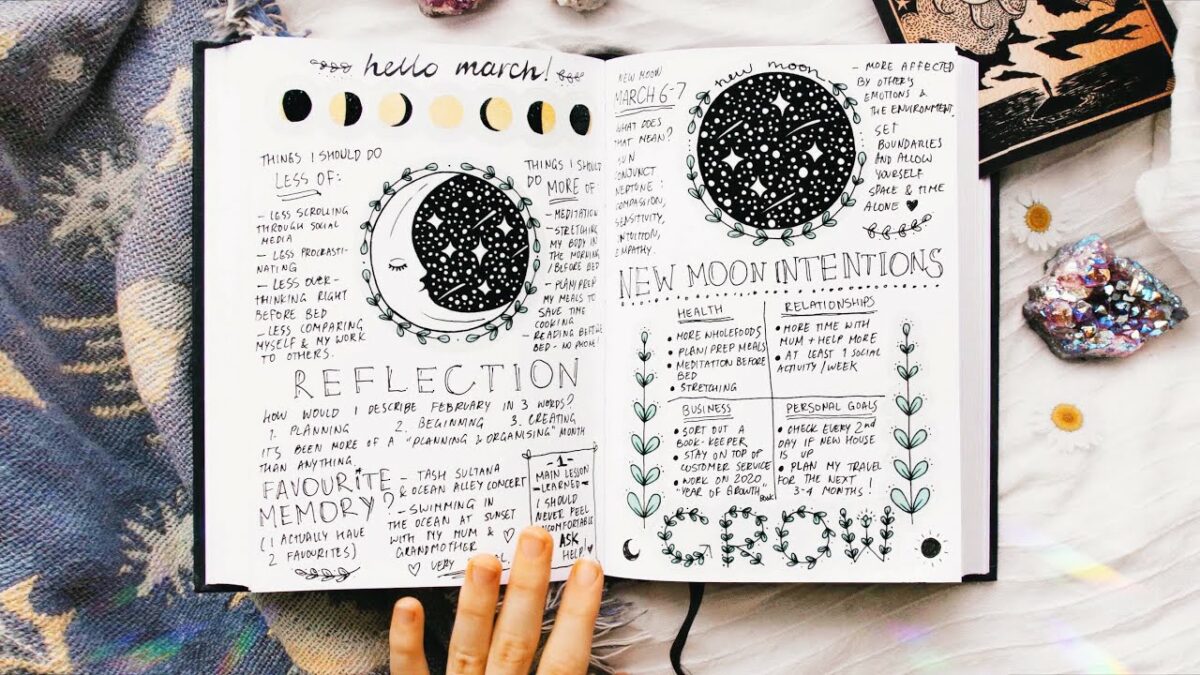 hello march!
THINGS I SHOULD DO
LESS OF:
– LESS SCROLLING
THROUGH SOCIAL
MEDIA
– LESS PROCRASTI-
NATING
– LESS OVER-
THINKING RIGHT
BEFORE BED
– LESS COMPARING
MYSELF & MY WORK
TO OTHERS.
THINGS I SHOULD
DO MORE OF:
– MEDITATION
– STRETCHING
MY BODY IN
THE MORNING
/BEFORE BED
– PLAN/PREP
MY MEALS TO
SAVE TIME
COOKING
– READING BEFORE
BED – NO PHONE!
REFLECTION
HOW WOULD I DESCRIBE FEBRUARY IN 3 WORDS?
1. PLANNING 2. BEGINNING 3. CREATING
IT'S BEEN MORE OF A "PLANNING & ORGANISING" MONTH
THAN ANYTHING
FAVOURITE
MEMORY?
(I ACTUALLY HAVE
2 FAVOURITES)
– TASH SULTANA
& OCEAN ALLEY CONCERT
– SWIMMING IN
THE OCEAN AT SUNSET
WITH MY MUM &
GRANDMOTHER
VERY
– 1 –
MAIN LESSON
LEARNED –
I SHOULD
NEVER FEEL
UNCOMFORTABLE
ASK
HELP!
NEW MOON
MARCH 6-7
WHAT DOES
THAT MEAN?
SUN
CONJUNCT
NEPTUNE:
COMPASSION,
SENSITIVITY,
INTUITION,
EMPATHY.
new moon
– MORE AFFECTED
BY OTHER'S
EMOTIONS &
THE ENVIRONMENT.
SET
BOUNDARIES
AND ALLOW
YOURSELF
SPACE & TIME
ALONE ♥
NEW MOON INTENTIONS
HEALTH
• MORE WHOLEFOODS
• PLAN/PREP MEALS
• MEDITATION BEFORE
BED
• STRETCHING
RELATIONSHIPS
• MORE TIME WITH
MUM + HELP MORE
• AT LEAST 1 SOCIAL
ACTIVITY/WEEK
BUSINESS
• SORT OUT A
BOOK-KEEPER
• STAY ON TOP OF
CUSTOMER SERVICE
• WORK ON 2020
"YEAR OF GROWTH" BOOK
PERSONAL GOALS
• CHECK EVERY 2nd
DAY IF NEW HOUSE
IS UP
• PLAN MY TRAVEL
FOR THE NEXT
3-4 MONTHS!
GROW